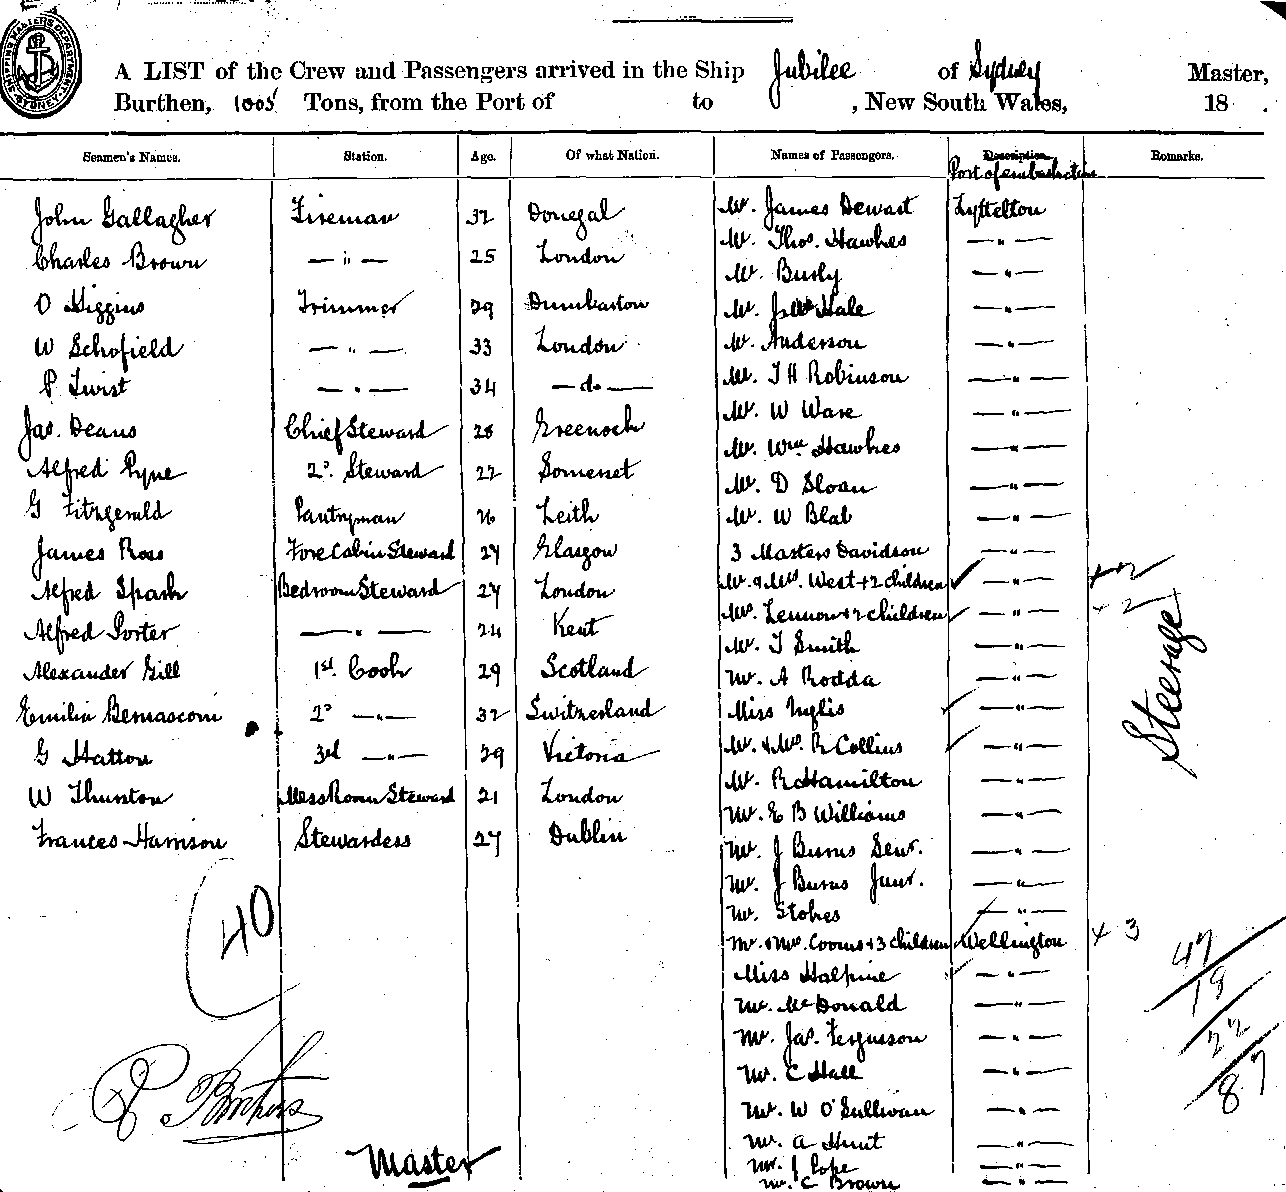 SHIPPING MASTERS DEPARTMENT SYDNEY
A LIST of the Crew and Passengers arrived in the Ship Jubilee of Sydney Master,
Burthen, 1005 Tons, from the Port of to , New South Wales, 18 .
Seamen's Names. Station. Age. Of what Nation. Names of Passengers. Description. Remarks.
Port of embarkation
John Gallagher Fireman 32 Donegal
Charles Brown — " — 25 London
O Higgins Trimmer 29 Dumbarton
W Schofield — " — 33 London
P Twist — " — 34 — do —
Jas. Deans Chief Steward 28 Greenock
Alfred Pyne 2° Steward 22 Somerset
G Fitzgerald Pantryman 26 Leith
James Ross Fore Cabin Steward 27 Glasgow
Alfred Spark Bedroom Steward 27 London
Alfred Porter — " — 24 Kent
Alexander Gill 1st. Cook 29 Scotland
Emilio Bernasconi 2° — " — 32 Switzerland
G Hatton 3rd — " — 29 Victoria
W Thunton Mess Room Steward 21 London
Frances Harrison Stewardess 27 Dublin
40
Master
Mr. James Dewast Lyttelton
Mr. Thos. Hawkes — " —
Mr. Busly — " —
Mr. Hale — " —
Mr. Anderson — " —
Mr. T H Robinson — " —
Mr. W Ware — " —
Mr. Wm Hawkes — " —
Mr. D Sloan — " —
Mr. W Blab — " —
3 Masters Davidson — " —
Mr. & Mrs. West + 2 children — " — + 2
Mrs. Lennon + 2 children — " — + 2
Mr. T Smith — " —
Mr. A Rodda — " —
Miss — " —
Mr. & Mrs. R Collins — " —
Mr. R Hamilton — " —
Mr. E B Williams — " —
Mr. J Burns Senr. — " —
Mr. J Burns Junr. — " —
Mr. Stokes — " —
Mr. & Mrs. Cooms + 3 children Wellington + 3
Miss Halpine — " —
Mr. McDonald — " —
Mr. Jas. Fergusson — " —
Mr. C Hall — " —
Mr. W O'Sullivan — " —
Mr. A Hunt — " —
Mr. J Pope — " —
Mr. C Brown — " —
Steerage
47
18
22
87